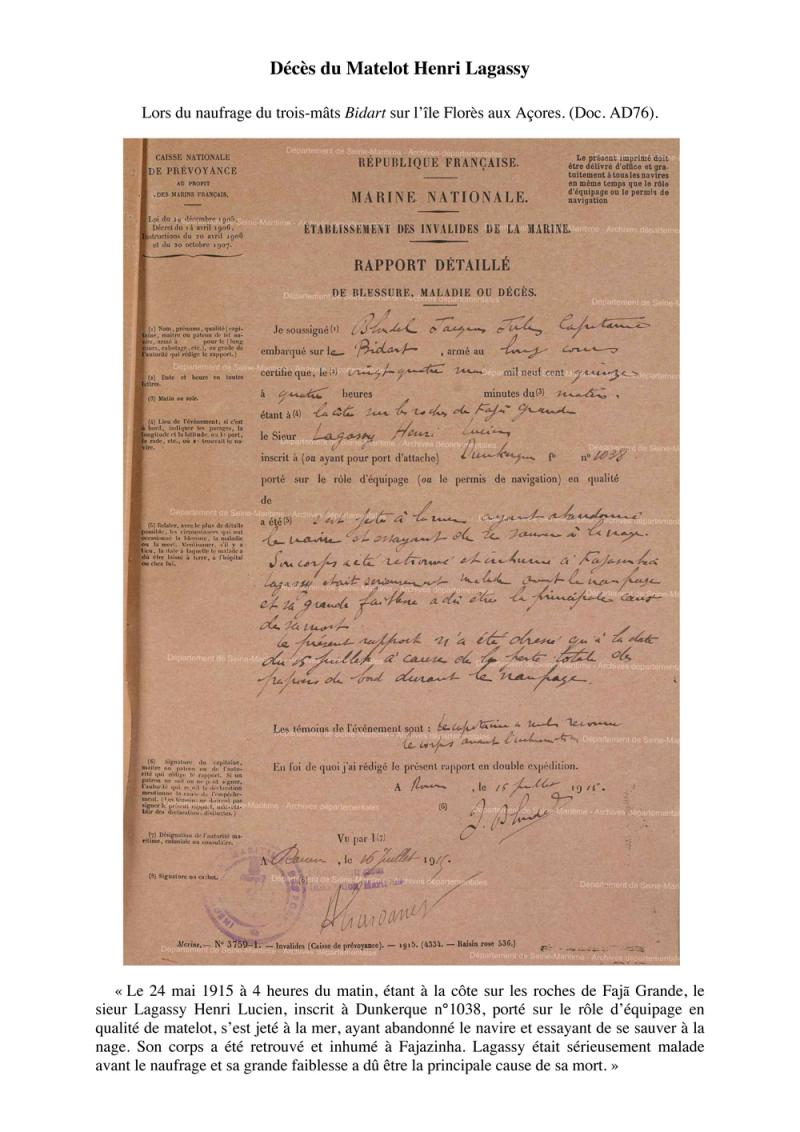 Décès du Matelot Henri Lagassy
Lors du naufrage du trois-mâts Bidart sur l’île Florès aux Açores. (Doc. AD76).
Département de Seine-Maritime - Archives départementales
CAISSE NATIONALE
DE PRÉVOYANCE
AU PROFIT
DES MARINS FRANÇAIS.
Loi du 29 décembre 1905,
Décret du 14 avril 1906,
Instructions du 20 avril 1906
et du 20 octobre 1907.
RÉPUBLIQUE FRANÇAISE.
MARINE NATIONALE.
ÉTABLISSEMENT DES INVALIDES DE LA MARINE.
RAPPORT DÉTAILLÉ
DE BLESSURE, MALADIE OU DÉCÈS.
Le présent imprimé doit
être délivré d'office et gra-
tuitement à tous les navires
en même temps que le rôle
d'équipage ou le permis de
navigation
(1) Nom, prénoms, qualité (capi-
taine, maître ou patron de tel na-
vire, armé à pour le (long
cours, cabotage, etc.), ou grade de
l'autorité qui rédige le rapport.)
(2) Date et heure en toutes
lettres.
(3) Matin ou soir.
(4) Lieu de l'événement; si c'est
à bord, indiquer les parages, la
longitude et la latitude, ou le port,
la rade, etc., où se trouvait le na-
vire.
(5) Relater, avec le plus de détails
possible, les circonstances qui ont
occasionné la blessure, la maladie
ou la mort. Mentionner, s'il y a
lieu, la date à laquelle le malade a
dû être laissé à terre, à l'hôpital
ou chez lui.
Je soussigné (1) Blondel Jacques Jules Capitaine
embarqué sur le Bidart, armé au long cours
certifie que, le (2) vingt quatre mai mil neuf cent quinze
à quatre heures minutes du (3) matin.
étant à (4) la côte sur les roches de Fajã Grande
le Sieur Lagassy Henri Lucien
inscrit à (ou ayant pour port d'attache) Dunkerque fo n° 1038
porté sur le rôle d'équipage (ou le permis de navigation) en qualité
de
a été (5) s'est jeté à la mer ayant abandonné
le navire et essayant de se sauver à la nage.
Son corps a été retrouvé et inhumé à Fajazinha
Lagassy était sérieusement malade avant le naufrage
et sa grande faiblesse a dû être la principale cause
de sa mort.
Le présent rapport n'a été dressé qu'à la date
du 15 juillet à cause de la perte totale des
papiers de bord durant le naufrage.
Les témoins de l'événement sont : Le capitaine a seul reconnu
le corps avant l'inhumation
En foi de quoi j'ai rédigé le présent rapport en double expédition.
A Rouen, le 15 juillet 1915.
(6) J. Blondel
(6) Signature du capitaine,
maître ou patron ou de l'auto-
rité qui rédige le rapport. Si un
patron ne sait ou ne peut signer,
l'autorité qui reçoit la déclaration
mentionne la cause de l'empêche-
ment.
(7) Désignation de l'autorité ma-
ritime, coloniale ou consulaire.
(8) Signature ou cachet.
Vu par (7)
A Rouen, le 16 Juillet 1915.
(8)
Marine. — N° 3759-1. — Invalides (Caisse de prévoyance). — 1915. (4334. — Raisin rose 536.)
« Le 24 mai 1915 à 4 heures du matin, étant à la côte sur les roches de Fajã Grande, le
sieur Lagassy Henri Lucien, inscrit à Dunkerque n°1038, porté sur le rôle d’équipage en
qualité de matelot, s’est jeté à la mer, ayant abandonné le navire et essayant de se sauver à la
nage. Son corps a été retrouvé et inhumé à Fajazinha. Lagassy était sérieusement malade
avant le naufrage et sa grande faiblesse a dû être la principale cause de sa mort. »